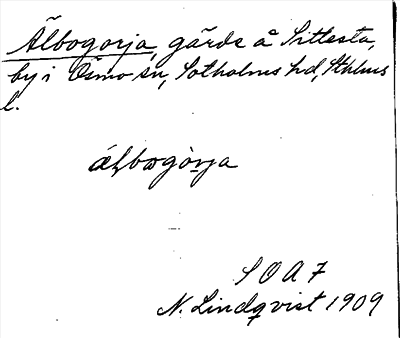 Älbogorja, gärde å Sittesta,
by i Ösmo sn, Sotholms hd, Sthlms
l.
älbogòrja
S O A 7
N. Lindqvist 1909